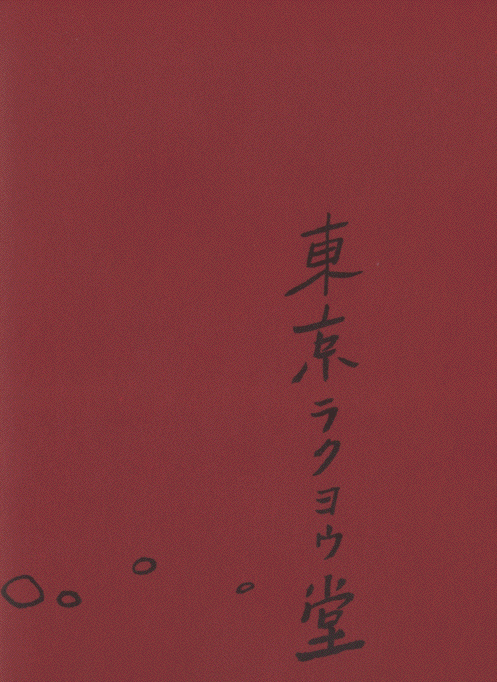 東京ラクヨウ堂